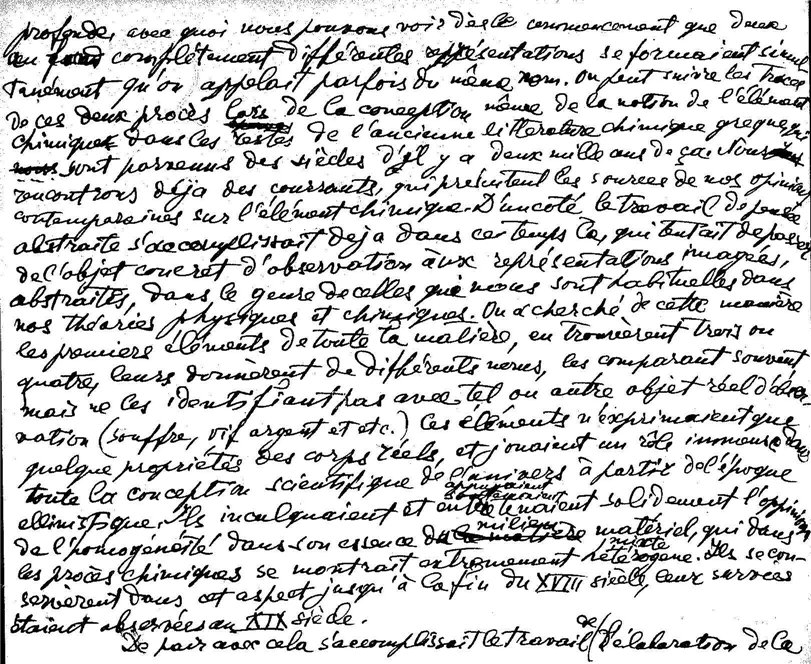 profonde, avec quoi nous pouvons voir dès le commencement que deux
complètement différentes représentations se formaient simul
tanément qu'on appelait parfois du même nom. On peut suivre les traces
De ces deux procès lors de la conception même de la notion de l'élément
chimique dans les textes de l'ancienne litterature chimique grecque,
sont parvenus des siècles d'il y a deux mille ans de ça. Nous
rencontrons déja des courrants, qui présentent les sources de nos opinions
contemporaines sur l'élément chimique. D'un coté le travail de pensée
abstraite s'accomplissait deja dans ce temps là, qui tentait de passer
de l'objet concret d'observation aux représentations imagées,
abstraites, dans le genre de celles que nous sont habituelles dans
nos théories physiques et chimiques. On a cherché de cette manière
les premiers éléments de toute la matière, en trouvèrent trois ou
quatre, leurs donnèrent de différents noms, les comparant souvent
mais ne les identifiant pas avec tel ou autre objet réel d'obser-
vation (souffre, vif argent et etc.) Ces éléments n'exprimaient que
quelque propriétés des corps réels, et jouaient un rôle immense dans
toute la conception scientifique de l'univers à partir de l'époque
ellinistique. Ils inculquaient et solidement l'opinion
de l'homogénéité dans son essence du milieu matériel, qui dans
les procès chimiques se montrait extremement mixte hétérogene. Ils se con-
servèrent dans cet aspect jusqu'à la fin du XVIII siècle, leur survies
étaient observées au XIX siècle.
De pair avec cela s'accomplissait le travail de l'élaboration de la